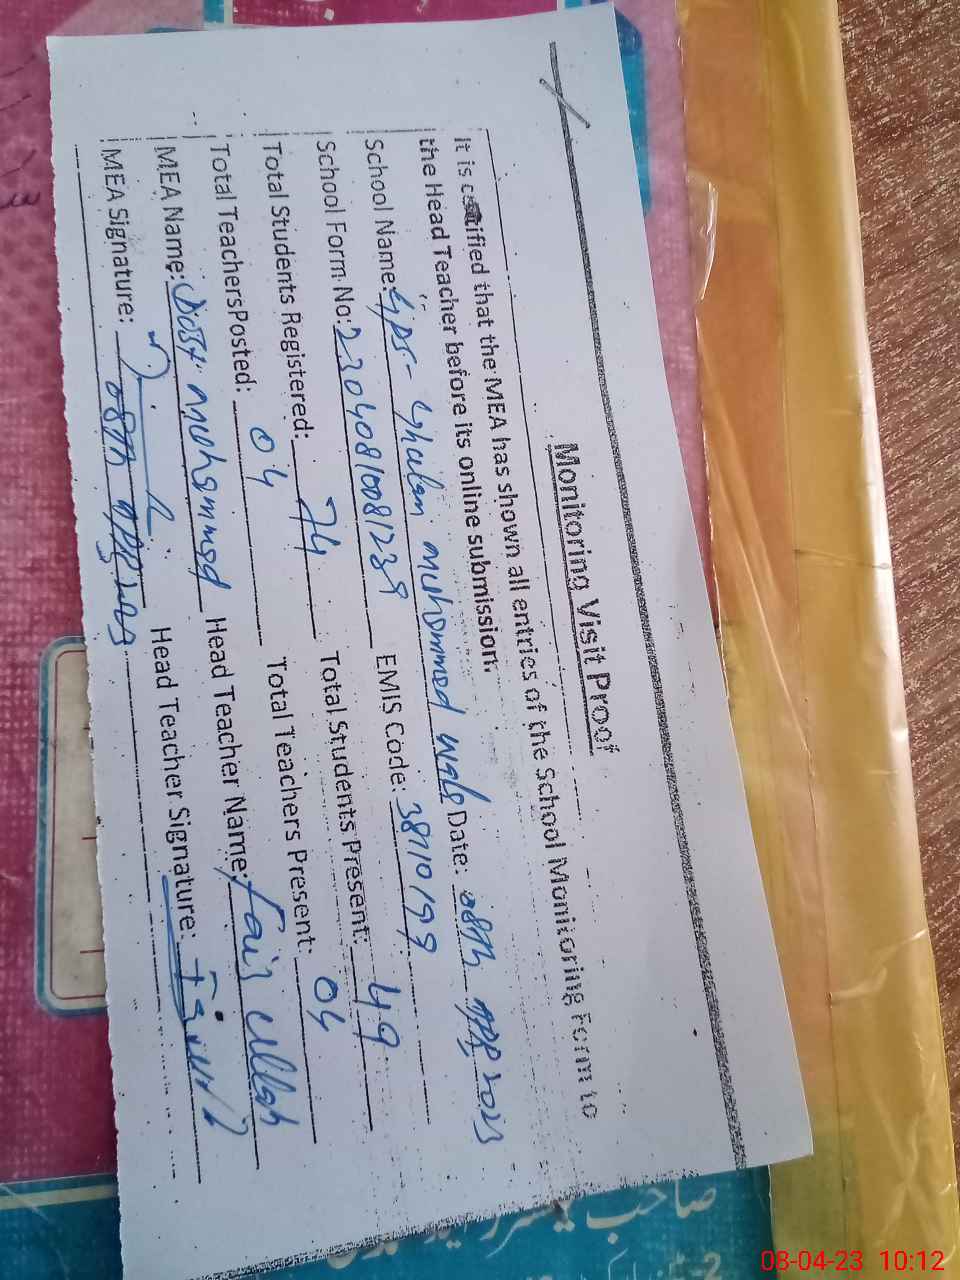 Monitoring Visit Proof
It is certified that the MEA has shown all entries of the School Monitoring Form to
the Head Teacher before its online submission.
School Name: GPS- Ghulam Muhammad Wala Date: 08th Apr, 2023
School Form No: 2304081008123 EMIS Code: 38110199
Total Students Registered: 74 Total Students Present: 49
Total Teachers Posted: 04 Total Teachers Present: 04
MEA Name: Dost Muhammad Head Teacher Name: Faiz Ullah
MEA Signature: 08th Apr, 2023 Head Teacher Signature:
صاحب
08-04-23 10:12